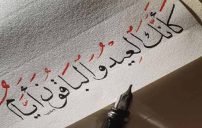 كأنك العيد والباقون أيام